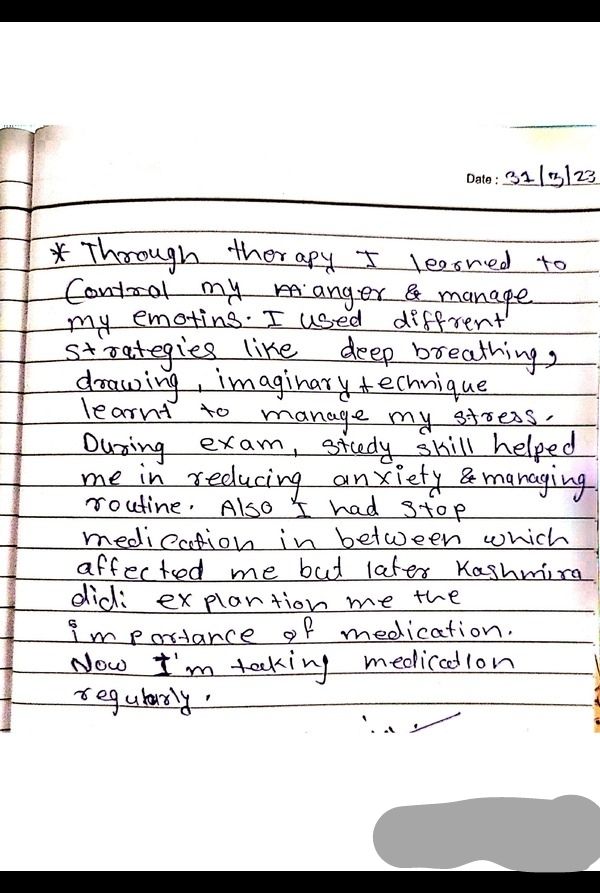 Date : 31/3/23
* Through therapy I learned to
Control my anger & manage
my emotins. I used diffrent
strategies like deep breathing,
drawing, imaginary technique
learnt to manage my stress.
During exam, study skill helped
me in reducing anxiety & managing
routine. Also I had stop
medication in between which
affected me but later Kashmira
didi explantion me the
importance of medication.
Now I'm taking medication
regularly.